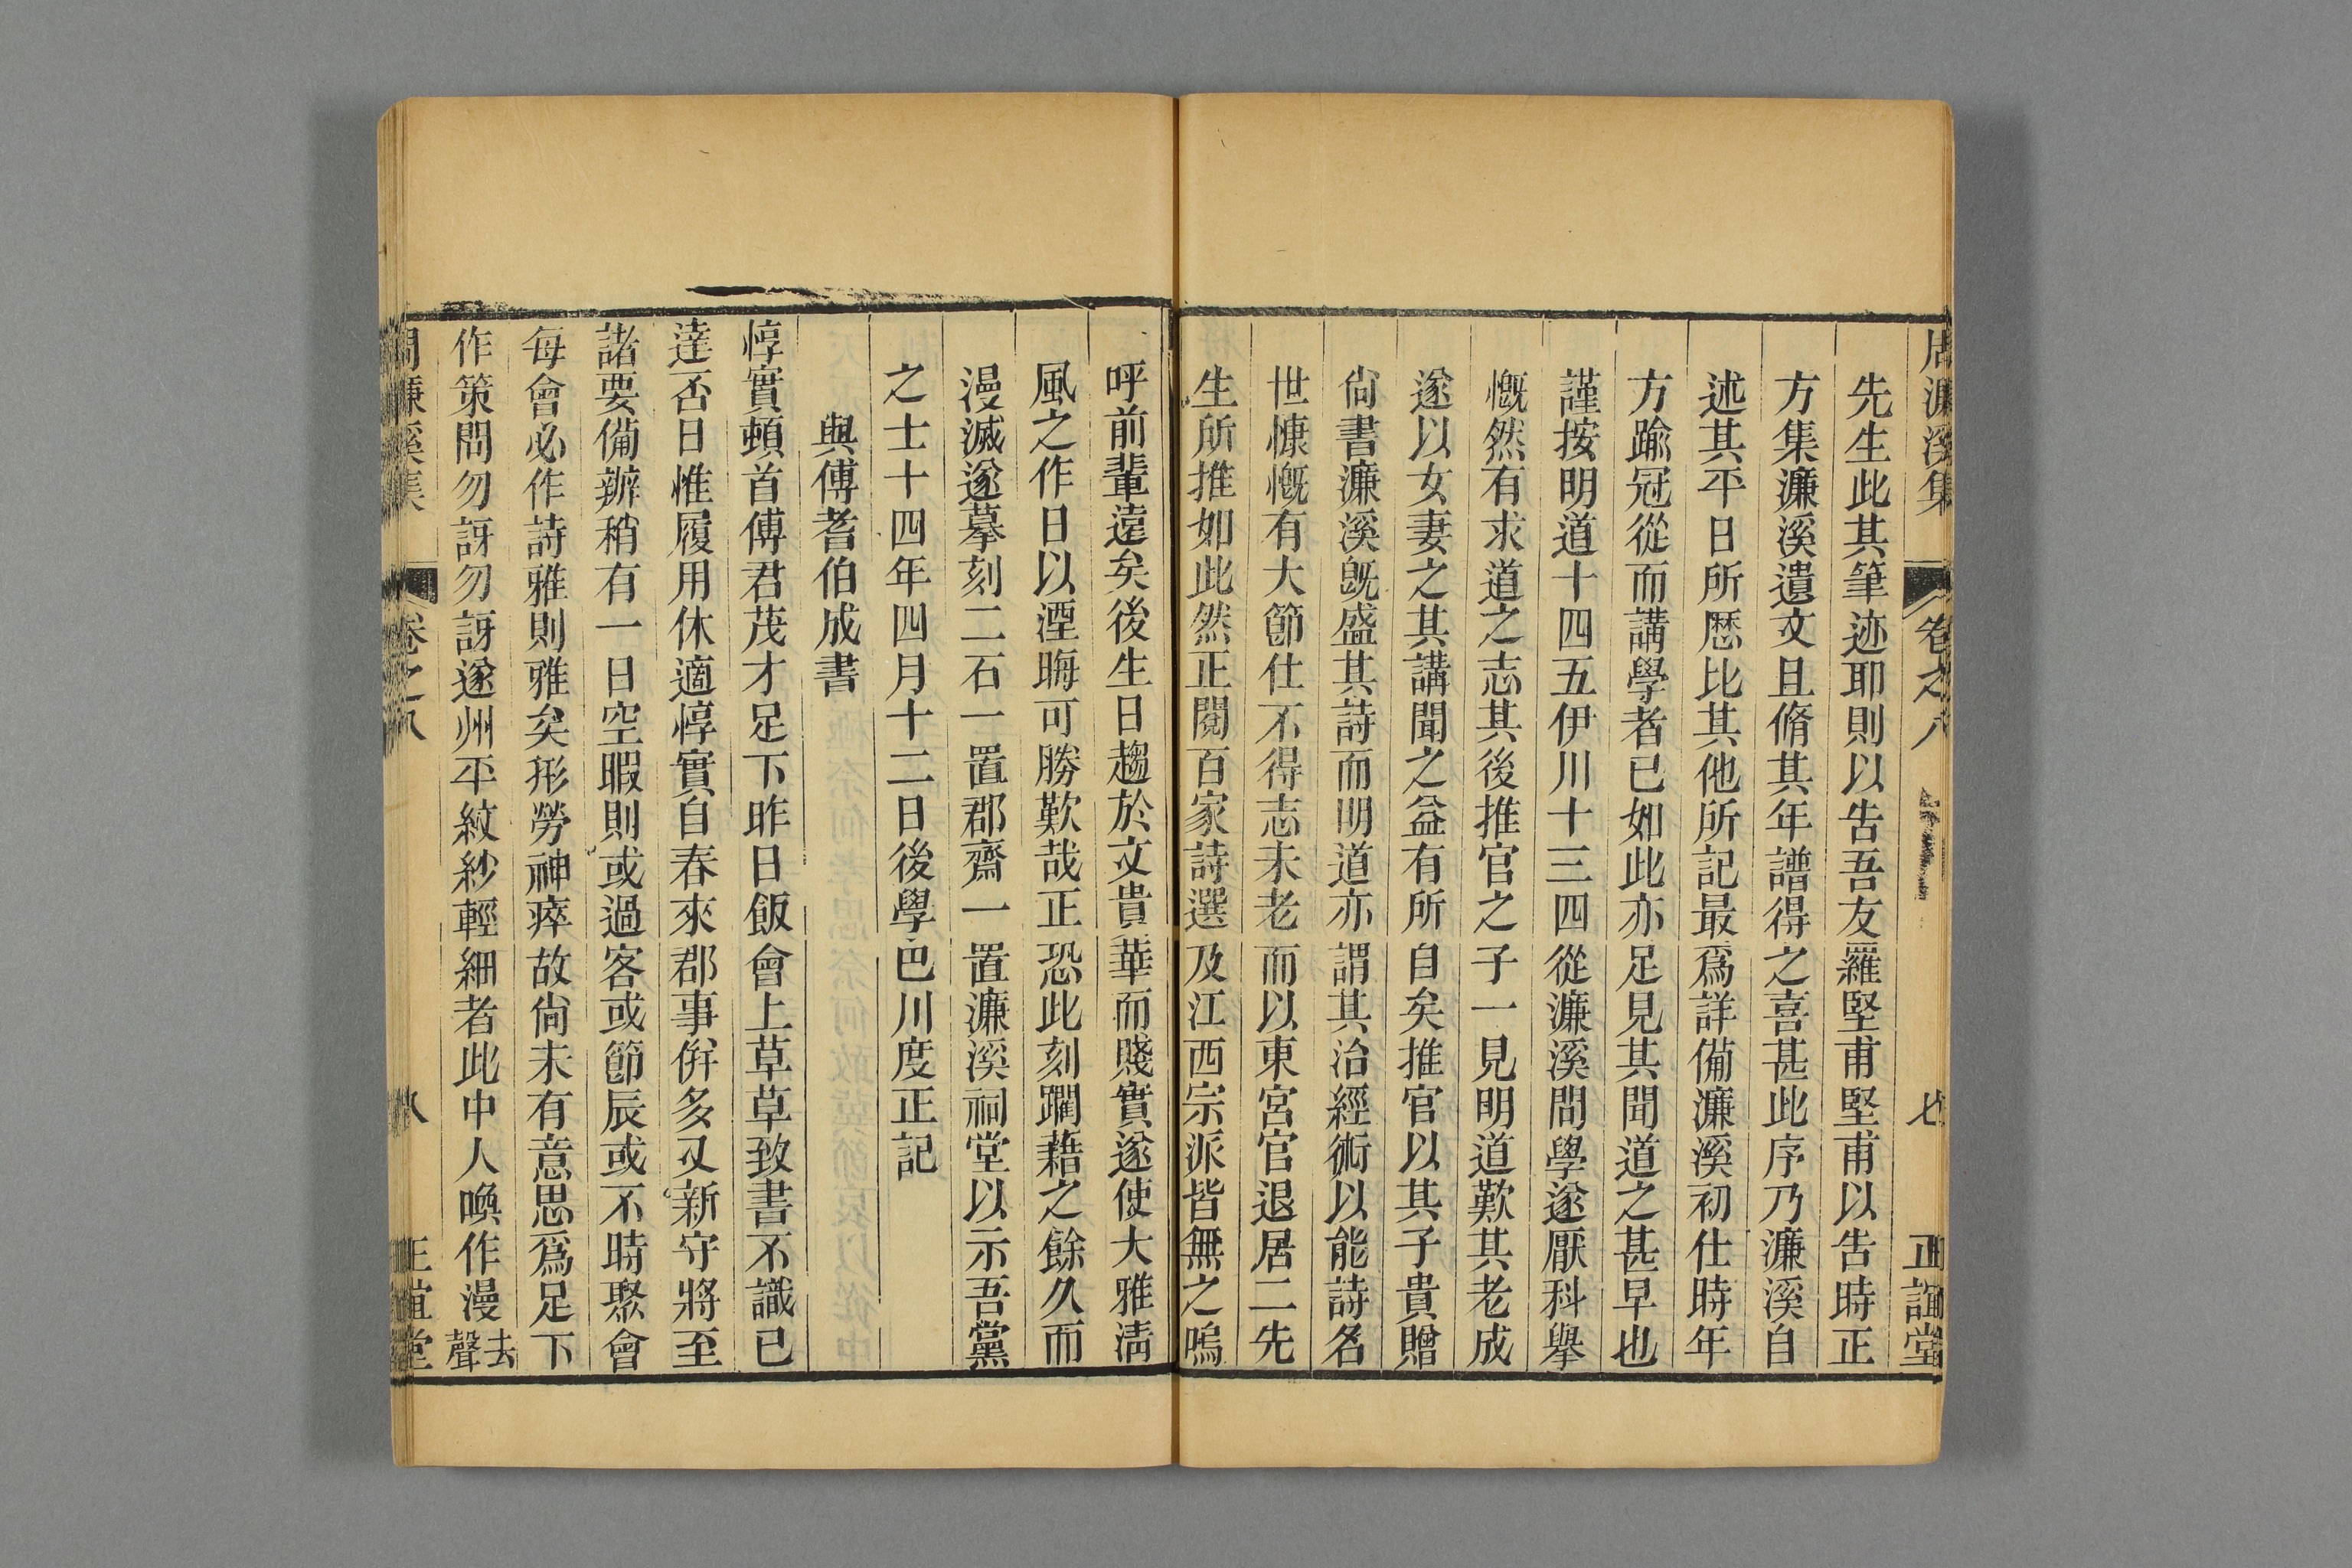 周濂溪集 卷之八 七 正誼堂
先生此其筆迹耶則以告吾友羅堅甫堅甫以告時正
方集濂溪遺文且脩其年譜得之喜甚此序乃濂溪自
述其平日所歷比其他所記最爲詳備濂溪初仕時年
方踰冠從而講學者已如此亦足見其聞道之甚早也
謹按明道十四五伊川十三四從濂溪問學遂厭科舉
慨然有求道之志其後推官之子一見明道歎其老成
遂以女妻之其講聞之益有所自矣推官以其子貴贈
尙書濂溪旣盛其詩而明道亦謂其治經術以能詩名
世慷慨有大節仕不得志未老而以東宮官退居二先
生所推如此然正閱百家詩選及江西宗派皆無之嗚
呼前輩遠矣後生日趨於文貴華而賤實遂使大雅淸
風之作日以湮晦可勝歎哉正恐此刻躙藉之餘久而
漫滅遂摹刻二石一置郡齋一置濂溪祠堂以示吾黨
之士十四年四月十二日後學巴川度正記
與傅耆伯成書
惇實頓首傅君茂才足下昨日飯會上草草致書不識已
達否日惟履用休適惇實自春來郡事倂多又新守將至
諸要備辦稍有一日空暇則或過客或節辰或不時聚會
每會必作詩雅則雅矣形勞神瘁故尙未有意思爲足下
作策問勿訝勿訝遂州平紋紗輕細者此中人喚作漫去聲
周濂溪集 卷之八 八 正誼堂